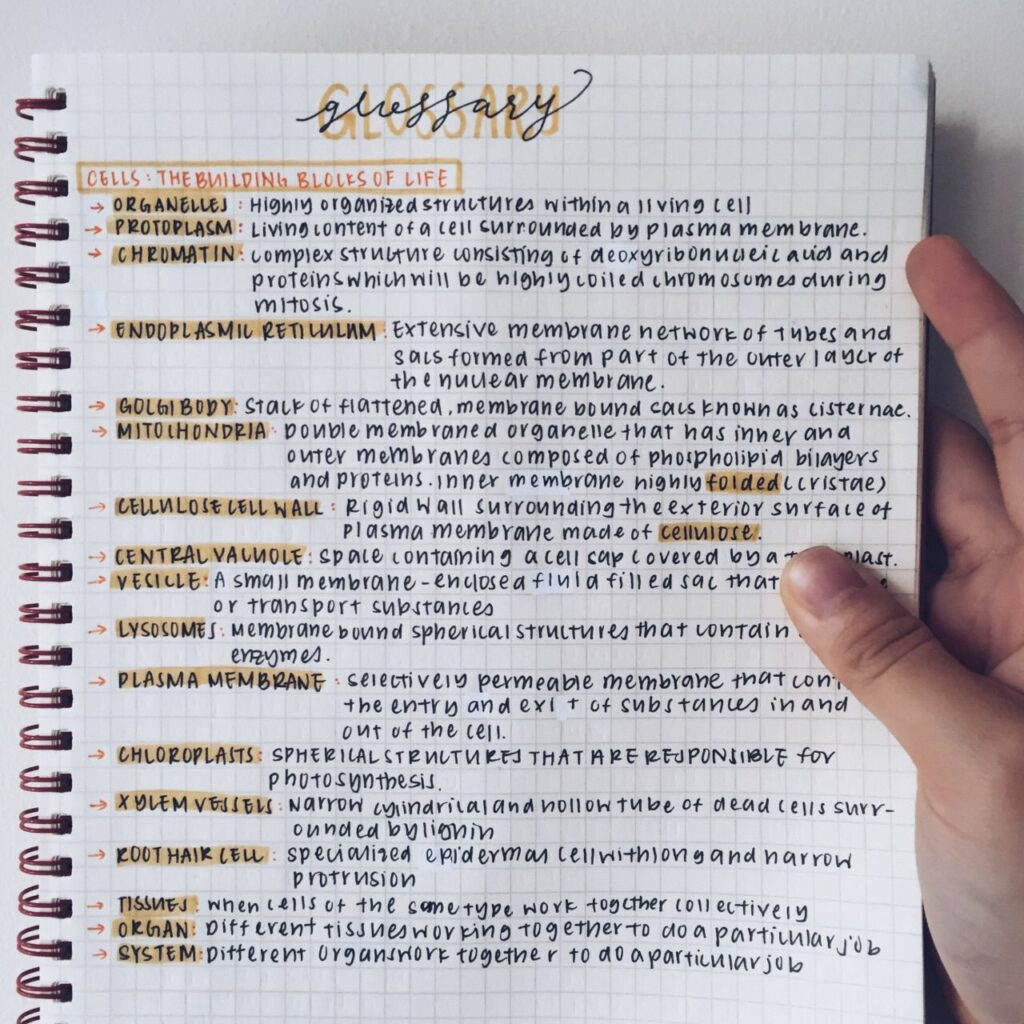 GLOSSARY
glossary
CELLS: THE BUILDING BLOCKS OF LIFE
→ ORGANELLES: Highly organized structures within a living cell
→ PROTOPLASM: Living content of a cell surrounded by plasma membrane.
→ CHROMATIN: complex structure consisting of deoxyribonucleic acid and
proteins which will be highly coiled chromosomes during
mitosis.
→ ENDOPLASMIC RETICULUM: Extensive membrane network of tubes and
sacs formed from part of the outer layer of
the nuclear membrane.
→ GOLGI BODY: Stack of flattened, membrane bound sacs known as cisternae.
→ MITOCHONDRIA: Double membraned organelle that has inner and
outer membranes composed of phospholipid bilayers
and proteins. inner membrane highly folded (cristae)
→ CELLULOSE CELL WALL: Rigid wall surrounding the exterior surface of
plasma membrane made of cellulose.
→ CENTRAL VACUOLE: space containing a cell sap covered by a
→ VESICLE: A small membrane-enclosed fluid filled sac that
or transport substances
→ LYSOSOMES: Membrane bound spherical structures that contain
enzymes.
→ PLASMA MEMBRANE: selectively permeable membrane that
the entry and exit of substances in and
out of the cell.
→ CHLOROPLASTS: SPHERICAL STRUCTURES THAT ARE RESPONSIBLE for
photosynthesis.
→ XYLEM VESSELS: Narrow cylindrical and hollow tube of dead cells surr-
ounded by lignin
→ ROOT HAIR CELL: specialized epidermal cell with long and narrow
protrusion
→ TISSUES: when cells of the same type work together collectively
→ ORGAN: Different tissues working together to do a particular job
→ SYSTEM: Different Organs work together to do a particular job